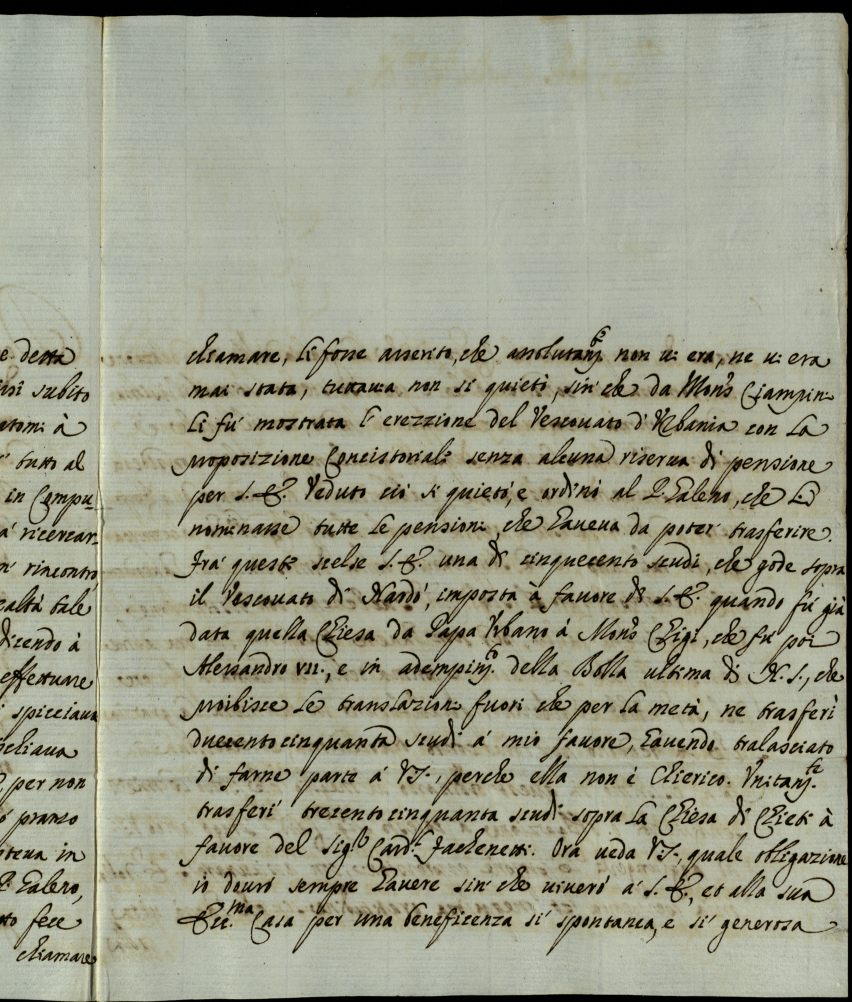 e detta
isi subito
atomi à
tutto al
in Compu-
à ricercar-
rincontro,
ealtà tale
dicendo à
effettuare
spicciaua
per non
pranso
steua in
P. Galeno,
tto fece
chiamare
chiamare, li fosse asserito, che assolutam.te non ui era, ne ui era
mai stata, tuttauia non si quietò, sin che da Mons.r Ciampini
li fù mostrata l'erezzione del Vescouato d'Vrbania con la
proposizione Concistoriale senza alcuna riserua di pensione
per S. E. Veduto ciò si quietò, e ordinò al P. Galeno, che li
nominasse tutte le pensioni, che haueua da poter trasferire.
Frà queste scelse S. E. una di cinquecento scudi, che gode sopra
il Vescouato di Nardò, imposta à fauore di S. E. quando fù già
data quella Chiesa da Papa Vrbano à Mons.r Chigi, che fù poi
Alessandro VII., e in adempim.to della Bolla ultima di N. S., che
proibisce le translazioni fuori che per la metà, ne trasferì
duecento cinquanta scudi à mio fauore, hauendo tralasciato
di farne parte à VS., perche ella non è Chierico. Vnitam.te
trasferì trecento cinquanta scudi sopra la Chiesa di Chieti à
fauore del Sig.r Card.l Fachenetti. Ora ueda VS., quale obligazione
io dourò sempre hauere sin che uiuerò à S. E., et alla sua
Ecc.ma Casa per una beneficenza sì spontanea, e sì generosa